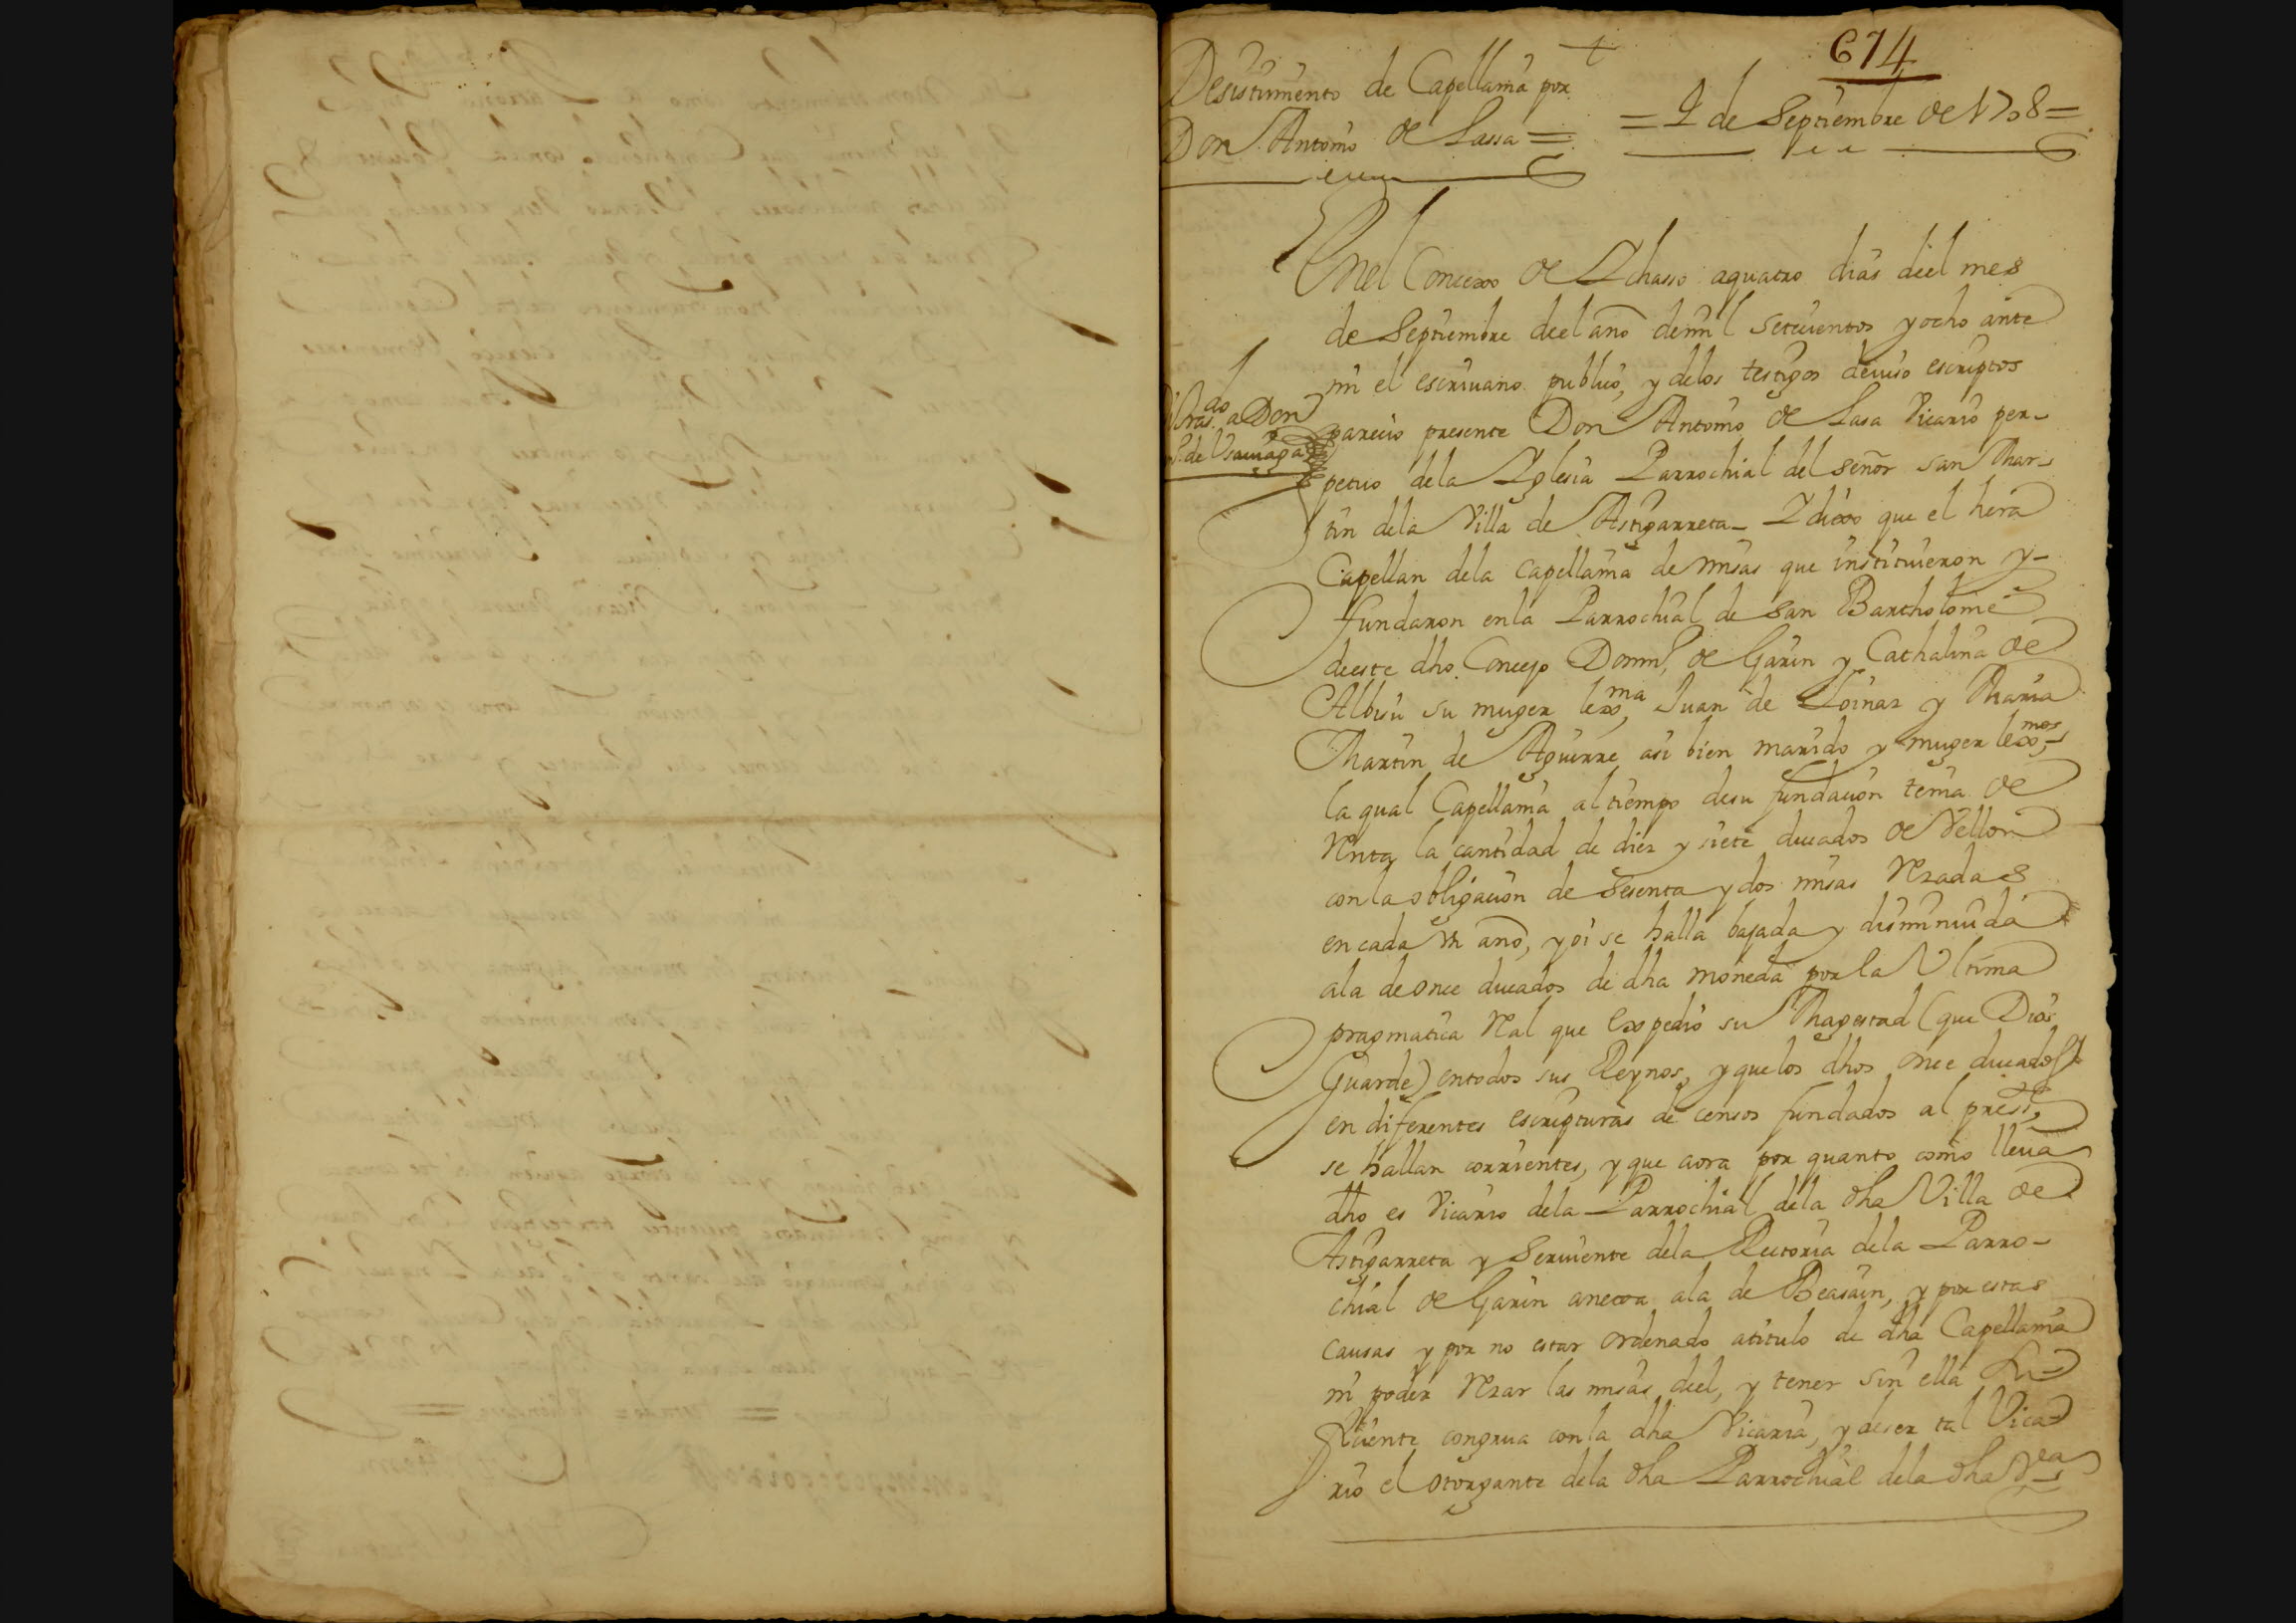 674
Desistimiento de Capellania por
Don Antonio de Lassa =
= 4 de Septiembre de 1708 =
En el Concexo de Ychasso a quatro dias de el mes
de Septiembre de el año de mil setecientos y ocho ante
mi el escrivano publico, y de los testigos de iuso escriptos
parecio presente Don Antonio de Lasa Vicario per-
petuo de la Yglesia Parrochial del señor san Mar-
tin de la Villa de Astigarreta - Y dixo que el hera
Capellan de la capellania de misas que instituieron y -
fundaron en la Parrochial de san Bartholome
de este dho. Concejo Domin.º de Garin y Cathalina de
Albisu su muger lexma, Juan de Loinaz y Maria
Martin de Aguirre asi bien marido y muger lexmos,
la qual Capellania al tiempo de su fundacion tenia de
Renta la cantidad de diez y siete ducados de Vellon
con la obligacion de sesenta y dos misas Rezadas
en cada un año, y oi se halla bajada y disminuida
a la de once ducados de dha moneda por la Ultima
pragmatica Real que expedio su Magestad (que Dios
Guarde) en todos sus Reynos, y que los dhos once ducados
en diferentes escripturas de censos fundados al prest.e
se hallan corrientes, y que aora por quanto como lleua
dho es Vicario de la Parrochial de la dha Villa de
Astigarreta y Seruiente de la Rectoria de la Parro-
chial de Garin anexa a la de Beasain, y por estas
causas y por no estar ordenado a titulo de dha Capellania
ni poder Rezar las misas de el, y tener sin ella su-
ficiente congrua con la dha Vicaria, y de ser tal Vica-
rio el otorgante de la dha Parrochial de la dha Va
do a Don